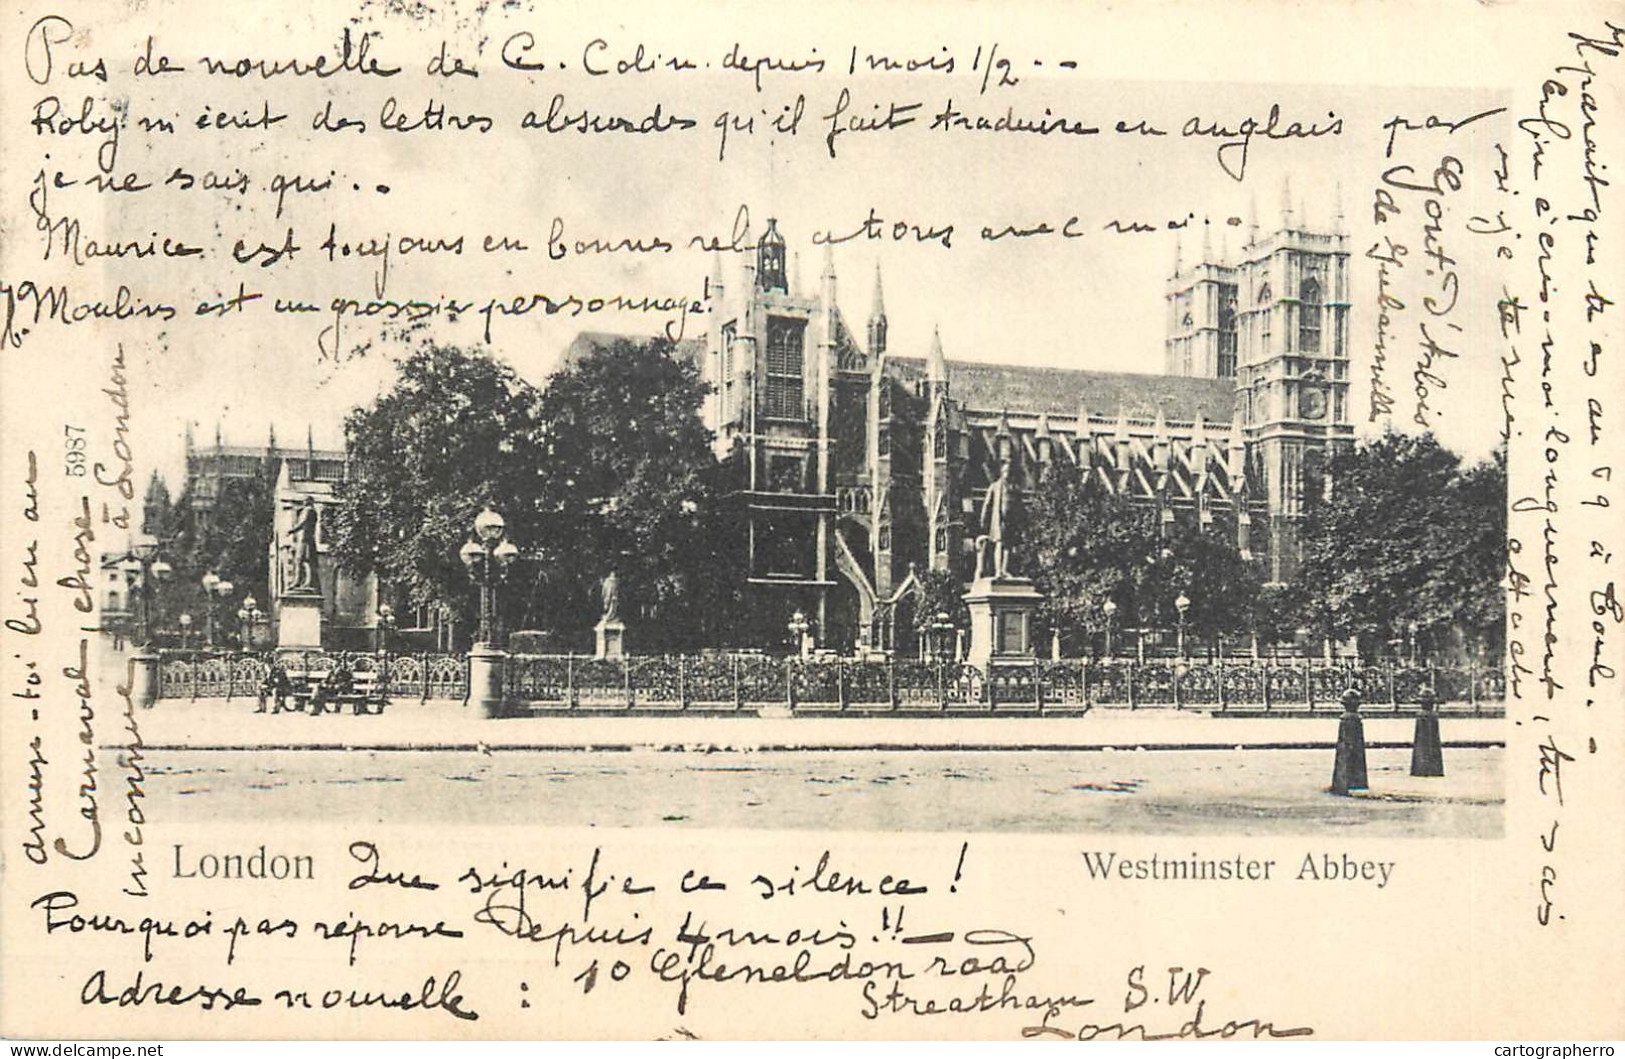 Pas de nouvelle de C. Colin. depuis 1 mois 1/2 . -
Roby m'écrit des lettres absurdes qu'il fait traduire en anglais par
je ne sais qui . .
Maurice est toujours en bonnes relations avec moi . .
Moulins est un grossier personnage!
Gont. d'Arbois
de Jubainville
Il parait que tu es au 69 à Toul. -
Enfin écris-moi longuement, tu sais
si je te suis attaché!
amuse-toi bien au
Carnaval, chose
inconnue à London
5987
London
Westminster Abbey
Que signifie ce silence!
Pourquoi pas réponse Depuis 4 mois!! —
Adresse nouvelle : 10 Gleneldon road
Streatham S.W.
London
www.cartographe.ro
cartographerro